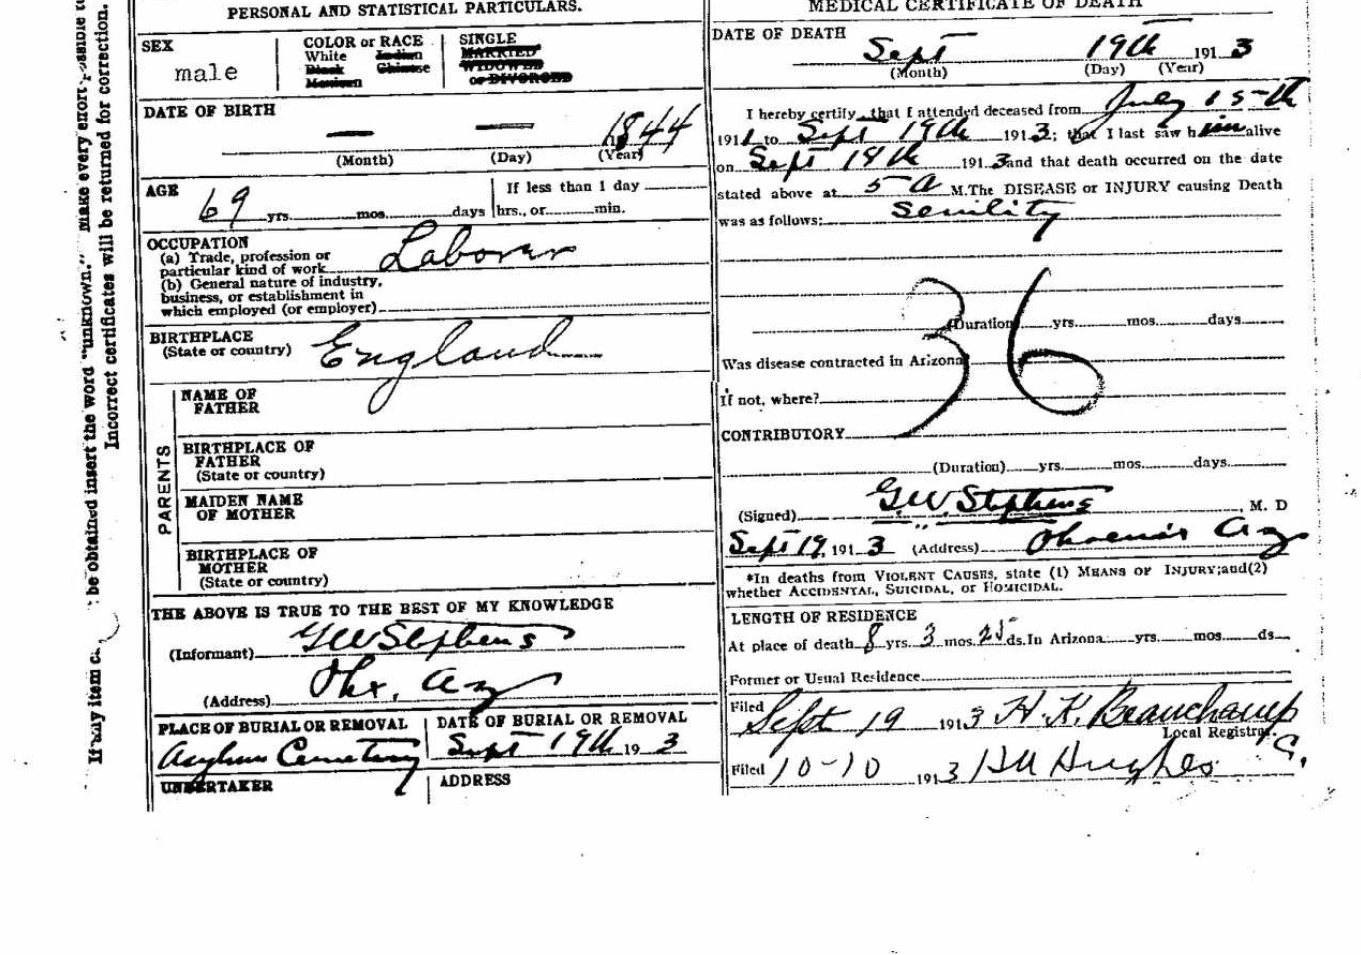 PERSONAL AND STATISTICAL PARTICULARS.
SEX
male
COLOR or RACE
White Indian
Black Chinese
Mexican
SINGLE
MARRIED
WIDOWED
or DIVORCED
DATE OF BIRTH
— — 1844
(Month) (Day) (Year)
AGE
69 yrs. mos. days
If less than 1 day
hrs., or min.
OCCUPATION
(a) Trade, profession or
particular kind of work Laborer
(b) General nature of industry,
business, or establishment in
which employed (or employer)
BIRTHPLACE
(State or country) England
PARENTS
NAME OF
FATHER
BIRTHPLACE OF
FATHER
(State or country)
MAIDEN NAME
OF MOTHER
BIRTHPLACE OF
MOTHER
(State or country)
THE ABOVE IS TRUE TO THE BEST OF MY KNOWLEDGE
(Informant) GW Stephens
(Address) Phx, Az
PLACE OF BURIAL OR REMOVAL
Asylum Cemetery
DATE OF BURIAL OR REMOVAL
Sept 19th 19 3
UNDERTAKER
ADDRESS
MEDICAL CERTIFICATE OF DEATH
DATE OF DEATH
Sept 19th 1913
(Month) (Day) (Year)
I hereby certify, that I attended deceased from July 15th
1911 to Sept 19th 1913; that I last saw him alive
on Sept 18th 1913 and that death occurred on the date
stated above at 5 A M. The DISEASE or INJURY causing Death
was as follows: Senility
36
(Duration) yrs. mos. days
Was disease contracted in Arizona
If not, where?
CONTRIBUTORY
(Duration) yrs. mos. days
(Signed) G.W. Stephens, M. D
Sept 19, 1913 (Address) Phoenix Az
*In deaths from VIOLENT CAUSES, state (1) MEANS OF INJURY; and (2)
whether ACCIDENTAL, SUICIDAL, or HOMICIDAL.
LENGTH OF RESIDENCE
At place of death 8 yrs. 3 mos. 25 ds. In Arizona yrs. mos. ds
Former or Usual Residence
Filed Sept 19 1913 H. K. Beauchamp
Local Registrar
Filed 10-10 1913 Hughes
be obtained insert the word "unknown." make every effort possible to
Incorrect certificates will be returned for correction.